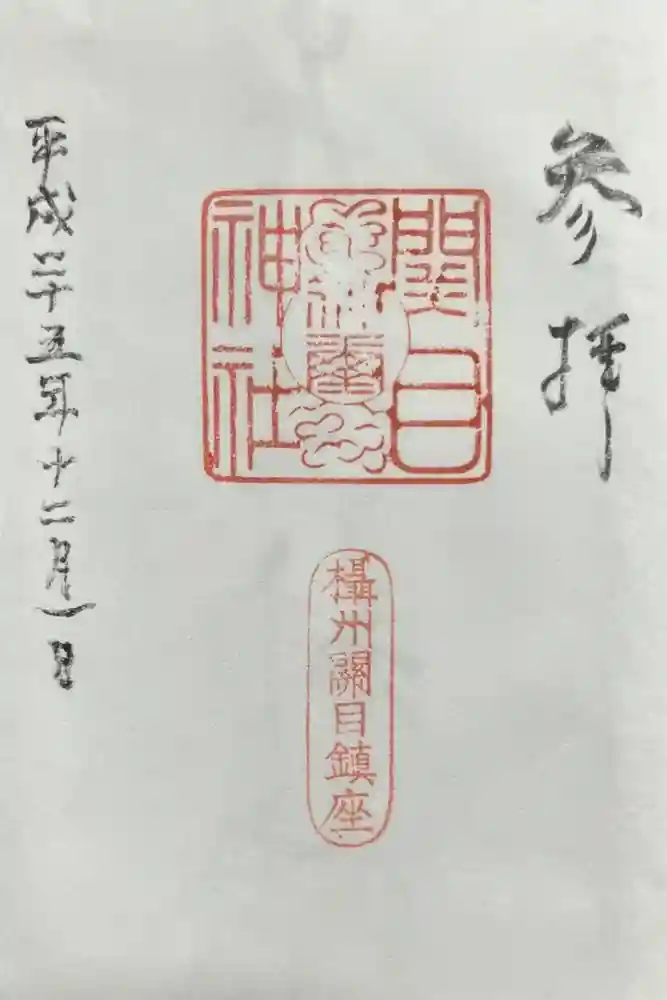 参拝
關目
神社
攝州關目鎮座
平成二十五年十二月一日